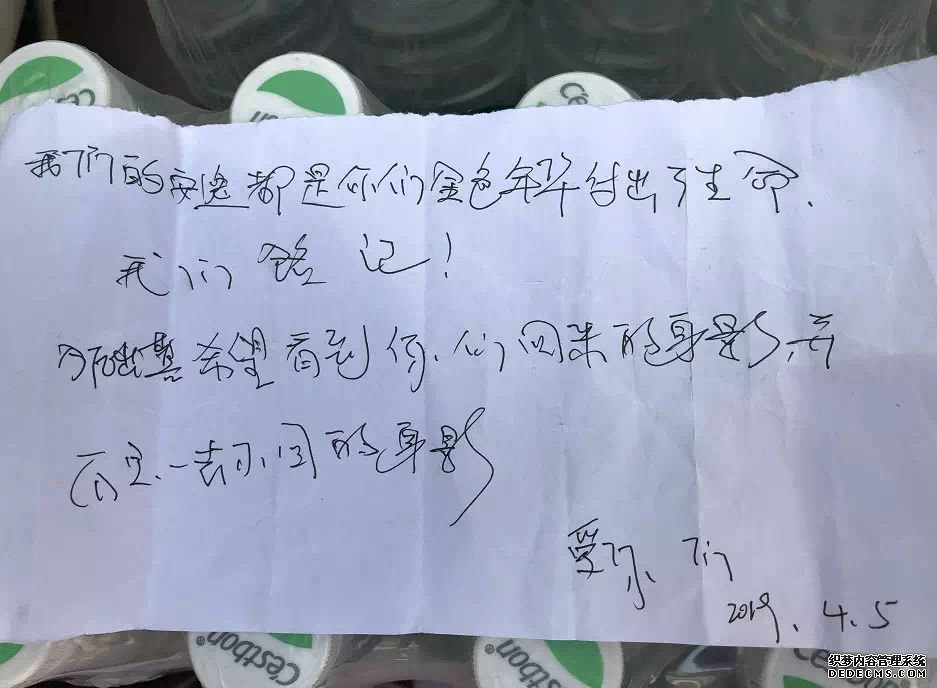 Cestbon
我们的安逸都是你们金色年华付出了生命、
我们铭记！
希望看到你们回来的身影、并
不是一去不回的身影
爱你们
2019.4.5
Cestbon®
Cestbon
织梦内容管理系统
DEDECMS.COM